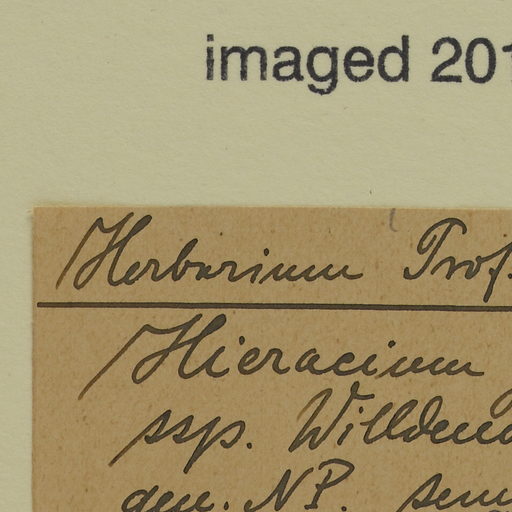 imaged 201
Herbarium Prof.
Hieracium
ssp. Willdeno
gen. NP. sem